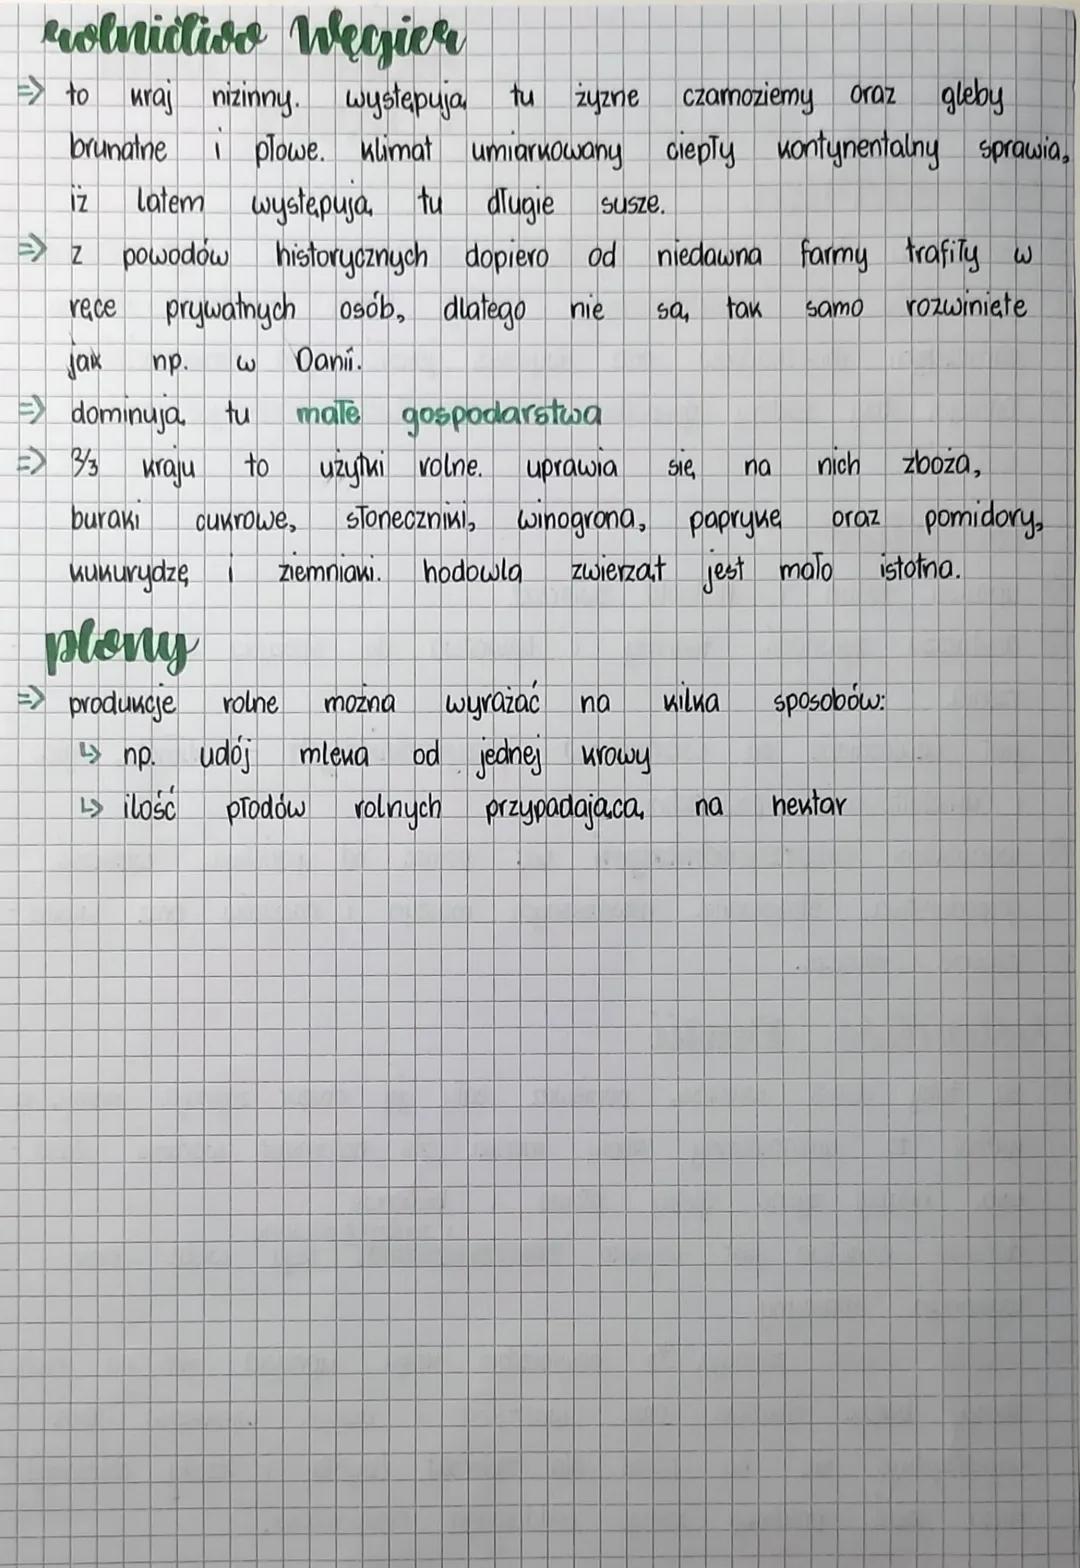 rolnictwo Węgier
=> to kraj nizinny. występują tu żyzne czarnoziemy oraz gleby
brunatne i płowe. klimat umiarkowany ciepły kontynentalny sprawia,
iż latem występują tu długie susze.
=> z powodów historycznych dopiero od niedawna farmy trafiły w
ręce prywatnych osób, dlatego nie są tak samo rozwinięte
jak np. w Danii.
=> dominują tu małe gospodarstwa
=> 2/3 kraju to użytki rolne. uprawia się na nich zboża,
buraki cukrowe, słoneczniki, winogrona, paprykę oraz pomidory,
kukurydzę i ziemniaki. hodowla zwierząt jest mało istotna.
plony
=> produkcje rolne można wyrażać na kilka sposobów:
↳ np. udój mleka od jednej krowy
↳ ilość płodów rolnych przypadająca na hektar